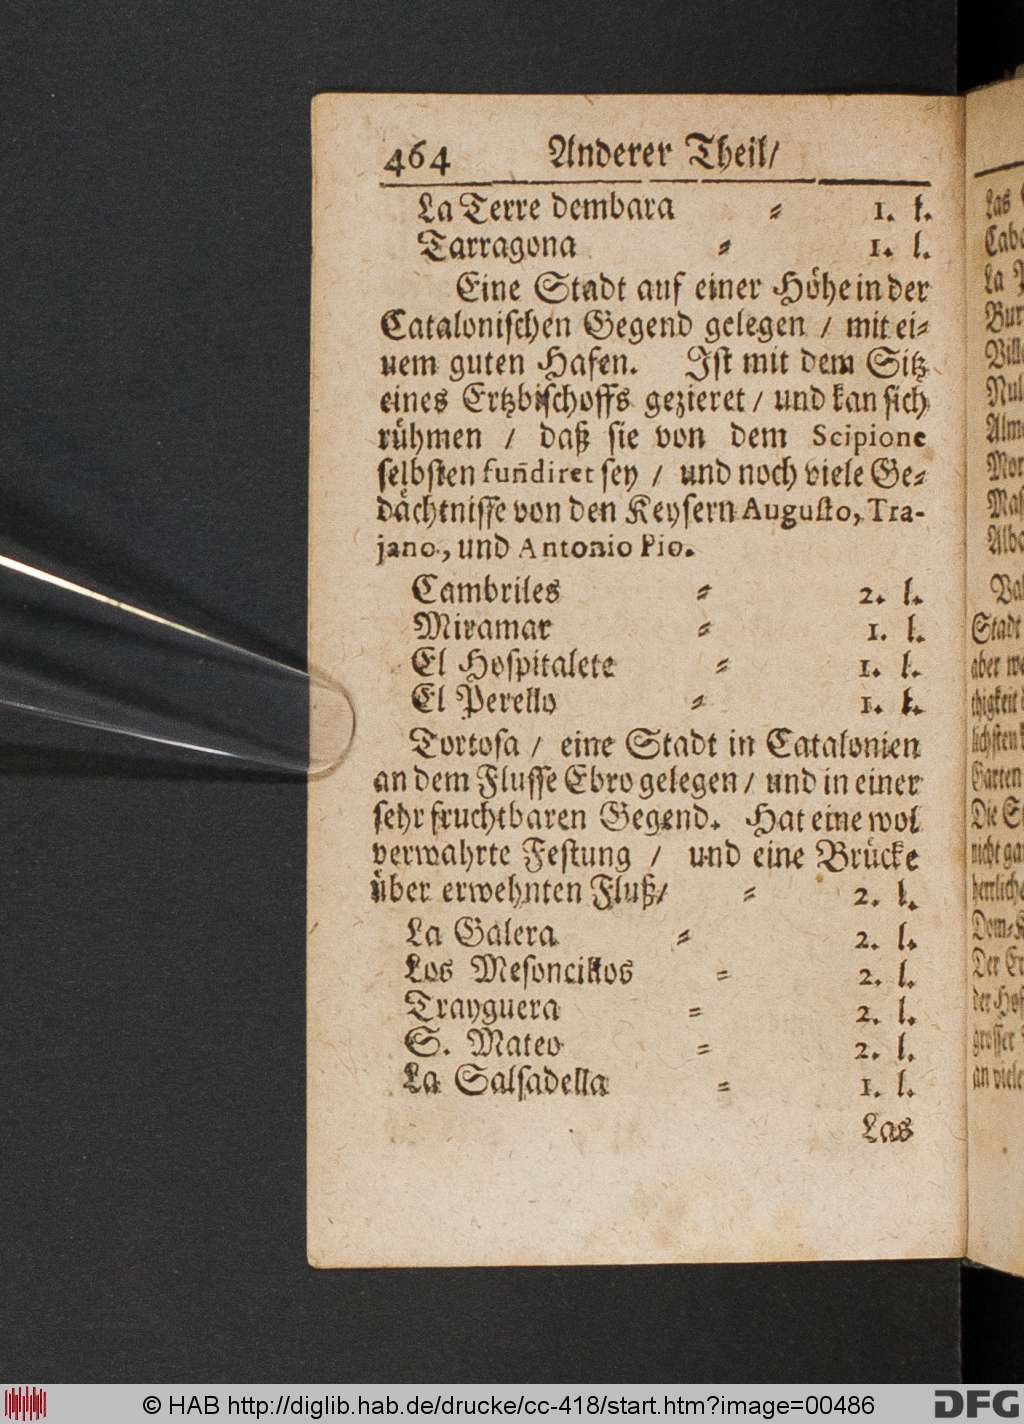 464 Anderer Theil/
La Terre dembara ⸗ 1. l.
Tarragona ⸗ 1. l.
Eine Stadt auf einer Höhe in der
Catalonischen Gegend gelegen / mit ei⸗
nem guten Hafen. Ist mit dem Sitz
eines Ertzbischoffs gezieret / und kan sich
rühmen / daß sie von dem Scipione
selbsten fundiret sey / und noch viele Ge⸗
dächtnisse von den Keysern Augusto, Tra-
jano, und Antonio Pio.
Cambriles ⸗ 2. l.
Miramar ⸗ 1. l.
El Hospitalete ⸗ 1. l.
El Perello ⸗ 1. l.
Tortosa / eine Stadt in Catalonien
an dem Flusse Ebro gelegen / und in einer
sehr fruchtbaren Gegend. Hat eine wol
verwahrte Festung / und eine Brücke
über erwehnten Fluß/ ⸗ 2. l.
La Galera ⸗ 2. l.
Los Mesoncillos ⸗ 2. l.
Trayguera ⸗ 2. l.
S. Mateo ⸗ 2. l.
La Salsadella ⸗ 1. l.
Las
Las
La
Stadt
aber
thigkeit
Garten
Die
nicht
Der
an viele
© HAB http://diglib.hab.de/drucke/cc-418/start.htm?image=00486
DFG